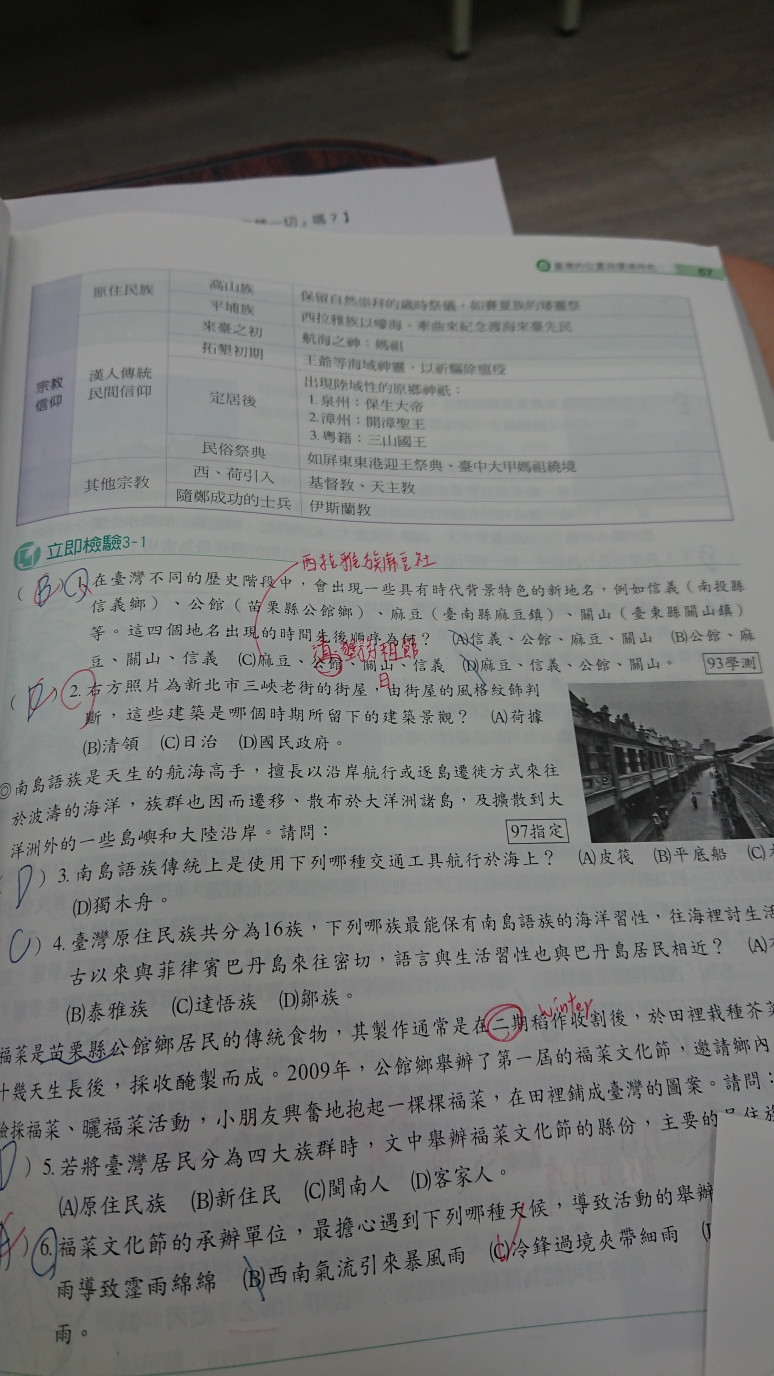 一切」嗎？】
臺灣的位置與環境特色 67
宗教信仰 原住民族 高山族 保留自然崇拜的歲時祭儀，如賽夏族的矮靈祭
平埔族 西拉雅族以嚎海、牽曲來紀念渡海來臺先民
漢人傳統民間信仰 來臺之初 航海之神：媽祖
拓墾初期 王爺等海域神靈，以祈驅除瘟疫
定居後 出現陸域性的原鄉神祇：
1.泉州：保生大帝
2.漳州：開漳聖王
3.粵籍：三山國王
民俗祭典 如屏東東港迎王祭典、臺中大甲媽祖繞境
其他宗教 西、荷引入 基督教、天主教
隨鄭成功的士兵 伊斯蘭教
立即檢驗3-1
西拉雅族麻豆社
( B ) 1. 在臺灣不同的歷史階段中，會出現一些具有時代背景特色的新地名，例如信義（南投縣
信義鄉）、公館（苗栗縣公館鄉）、麻豆（臺南縣麻豆鎮）、關山（臺東縣關山鎮）
等。這四個地名出現的時間先後順序為何？ (A)信義、公館、麻豆、關山 (B)公館、麻
豆、關山、信義 (C)麻豆、公館、關山、信義 (D)麻豆、信義、公館、關山。 93學測
清 租館
日
( ) 2. 右方照片為新北市三峽老街的街屋，由街屋的風格紋飾判
斷，這些建築是哪個時期所留下的建築景觀？ (A)荷據
(B)清領 (C)日治 (D)國民政府。
◎南島語族是天生的航海高手，擅長以沿岸航行或逐島遷徙方式來往
於波濤的海洋，族群也因而遷移、散布於大洋洲諸島，及擴散到大
洋洲外的一些島嶼和大陸沿岸。請問： 97指定
D ) 3. 南島語族傳統上是使用下列哪種交通工具航行於海上？ (A)皮筏 (B)平底船 (C)
(D)獨木舟。
C ) 4. 臺灣原住民族共分為16族，下列哪族最能保有南島語族的海洋習性，往海裡討生活
古以來與菲律賓巴丹島來往密切，語言與生活習性也與巴丹島居民相近？ (A)
(B)泰雅族 (C)達悟族 (D)鄒族。
winter
福菜是苗栗縣公館鄉居民的傳統食物，其製作通常是在二期稻作收割後，於田裡栽種芥菜
十幾天生長後，採收醃製而成。2009年，公館鄉舉辦了第一屆的福菜文化節，邀請鄉內
採福菜、曬福菜活動，小朋友興奮地抱起一棵棵福菜，在田裡鋪成臺灣的圖案。請問：
D ) 5. 若將臺灣居民分為四大族群時，文中舉辦福菜文化節的縣份，主要的
(A)原住民族 (B)新住民 (C)閩南人 (D)客家人。
) 6. 福菜文化節的承辦單位，最擔心遇到下列哪種天候，導致活動的舉辦
雨導致霪雨綿綿 (B)西南氣流引來暴風雨 (C)冷鋒過境夾帶細雨
雨。